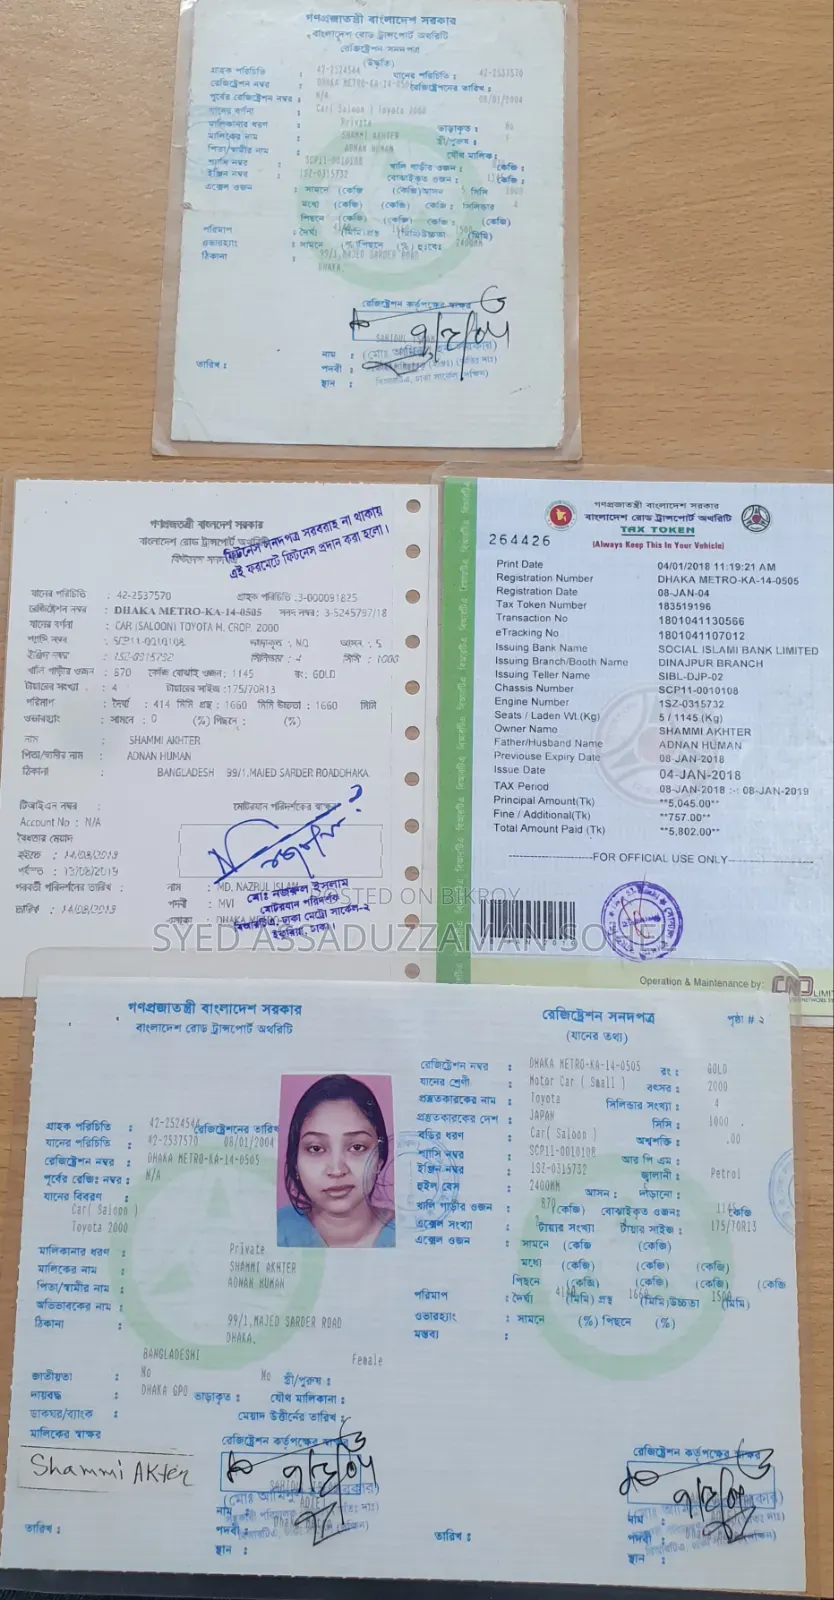 গণপ্রজাতন্ত্রী বাংলাদেশ সরকার
বাংলাদেশ রোড ট্রান্সপোর্ট অথরিটি
রেজিস্ট্রেশন সনদপত্র
গ্রাহক পরিচিতি : 42-2524544 যানের পরিচিতি : 42-2537570
রেজিস্ট্রেশন নম্বর : DHAKA METRO-KA-14-0505 রেজিস্ট্রেশনের তারিখ :
পূর্বের রেজিস্ট্রেশন নম্বর : N/A 08/01/2004
যানের বর্ণনা : Car( Saloon ) Toyota 2000
মালিকানার ধরণ : Private ভাড়াকৃত : No
মালিকের নাম : SHAMMI AKHTER স্ত্রী/পুরুষ :
পিতা/স্বামীর নাম : ADNAN HUMAN যৌথ মালিক:
শ্যাসি নম্বর : SCP11-0010108 খালি গাড়ীর ওজন : কেজি :
ইঞ্জিন নম্বর : 1SZ-0315732 বোঝাইকৃত ওজন : কেজি :
এক্সেল ওজন : সামনে (কেজি (কেজি)আসন 5 সিসি 1000
মধ্যে (কেজি) (কেজি) (কেজি : সিলিন্ডার 4
পিছনে (কেজি) (কেজি) কেজি : (কেজি)
পরিমাপ : দৈর্ঘ্য (মিমি)প্রস্থ (মিমি)উচ্চতা (মিমি)
ওভারহ্যাং : সামনে (%)পিছনে (%) হুঃবেঃ 2400MM
ঠিকানা : 99/1,MAJED SARDER ROAD
DHAKA.
রেজিস্ট্রেশন কর্তৃপক্ষের স্বাক্ষর
তারিখ :
নাম :
পদবী :
স্থান :
গণপ্রজাতন্ত্রী বাংলাদেশ সরকার
বাংলাদেশ রোড ট্রান্সপোর্ট অথরিটি
ফিটনেস সনদপত্র
ফিটনেস সনদপত্র সরবরাহ না থাকায়
এই ফরমেটে ফিটনেস প্রদান করা হলো।
যানের পরিচিতি : 42-2537570 গ্রাহক পরিচিতি :3-000091825
রেজিস্ট্রেশন নম্বর : DHAKA METRO-KA-14-0505 সনদ নম্বর: 3-5245797/18
যানের বর্ণনা : CAR (SALOON) TOYOTA M. CROP. 2000
শ্যাসি নম্বর : SCP11-0010108 ভাড়াকৃত : NO আসন : 5
ইঞ্জিন নম্বর : 1SZ-0315732 সিলিন্ডার : 4 সিসি : 1000
খালি গাড়ীর ওজন : 870 কেজি বোঝাই ওজন : 1145 রং: GOLD
টায়ারের সংখ্যা : 4 টায়ারের সাইজ :175/70R13
পরিমাপ : দৈর্ঘ্য : 414 মিমি প্রস্থ : 1660 মিমি উচ্চতা : 1660 মিমি
ওভারহ্যাং : সামনে : 0 (%) পিছনে : (%)
নাম : SHAMMI AKHTER
পিতা/স্বামীর নাম : ADNAN HUMAN
ঠিকানা : BANGLADESH 99/1,MAJED SARDER ROADDHAKA.
টিআইএন নম্বর : মোটরযান পরিদর্শকের স্বাক্ষর
Account No : N/A
বৈধতার মেয়াদ
হইতে : 14/08/2018
পর্যন্ত : 13/08/2019
পরবর্তী পরিদর্শনের তারিখ : নাম : MD. NAZRUL ISLAM
পদবী : MVI
তারিখ : 14/08/2018 এলাকা : DHAKA METRO
মোঃ নজরুল ইসলাম
মোটরযান পরিদর্শক
বিআরটিএ, ঢাকা মেট্রো সার্কেল-২
ইকুরিয়া, ঢাকা।
গণপ্রজাতন্ত্রী বাংলাদেশ সরকার
বাংলাদেশ রোড ট্রান্সপোর্ট অথরিটি
TAX TOKEN
264426
(Always Keep This In Your Vehicle)
Print Date 04/01/2018 11:19:21 AM
Registration Number DHAKA METRO-KA-14-0505
Registration Date 08-JAN-04
Tax Token Number 183519196
Transaction No 1801041130566
eTracking No 1801041107012
Issuing Bank Name SOCIAL ISLAMI BANK LIMITED
Issuing Branch/Booth Name DINAJPUR BRANCH
Issuing Teller Name SIBL-DJP-02
Chassis Number SCP11-0010108
Engine Number 1SZ-0315732
Seats / Laden Wt.(Kg) 5 / 1145 (Kg)
Owner Name SHAMMI AKHTER
Father/Husband Name ADNAN HUMAN
Previouse Expiry Date 08-JAN-2018
Issue Date 04-JAN-2018
TAX Period 08-JAN-2018 :-: 08-JAN-2019
Principal Amount(Tk) **5,045.00**
Fine / Additional(Tk) **757.00**
Total Amount Paid (Tk) **5,802.00**
FOR OFFICIAL USE ONLY
Operation & Maintenance by: CNS LIMI
POSTED ON BIKROY
SYED ASSADUZZAMAN SOHEL
গণপ্রজাতন্ত্রী বাংলাদেশ সরকার
বাংলাদেশ রোড ট্রান্সপোর্ট অথরিটি
গ্রাহক পরিচিতি : 42-2524544 রেজিস্ট্রেশনের তারিখ
যানের পরিচিতি : 42-2537570 08/01/2004
রেজিস্ট্রেশন নম্বর : DHAKA METRO-KA-14-0505
পূর্বের রেজিঃ নম্বর : N/A
যানের বিবরণ :
Car( Saloon )
Toyota 2000
মালিকানার ধরণ : Private
মালিকের নাম : SHAMMI AKHTER
পিতা/স্বামীর নাম : ADNAN HUMAN
অভিভাবকের নাম :
ঠিকানা : 99/1,MAJED SARDER ROAD
DHAKA.
BANGLADESHI Female
জাতীয়তা : No No স্ত্রী/পুরুষ :
দায়বদ্ধ : DHAKA GPO ভাড়াকৃত : যৌথ মালিকানা :
ডাকঘর/ব্যাংক : মেয়াদ উত্তীর্নের তারিখ :
মালিকের স্বাক্ষর রেজিস্ট্রেশন কর্তৃপক্ষের স্বাক্ষর
Shammi AKhter
নাম :
তারিখ : পদবী :
স্থান :
রেজিস্ট্রেশন সনদপত্র পৃষ্ঠা # ২
(যানের তথ্য)
রেজিস্ট্রেশন নম্বর : DHAKA METRO-KA-14-0505 রং: GOLD
যানের শ্রেণী : Motor Car ( Small ) বৎসর : 2000
প্রস্তুতকারকের নাম : Toyota সিলিন্ডার সংখ্যা : 4
প্রস্তুতকারকের দেশ : JAPAN সিসি : 1000
বডির ধরণ : Car( Saloon ) অশ্বশক্তি : .00
শ্যাসি নম্বর : SCP11-0010108 আর পি এম :
ইঞ্জিন নম্বর : 1SZ-0315732 জ্বালানী : Petrol
হুইল বেস : 2400MM আসন : দাঁড়ানো :
খালি গাড়ীর ওজন : 870 (কেজি) বোঝাইকৃত ওজন: 1145 কেজি
এক্সেল সংখ্যা : টায়ার সংখ্যা টায়ার সাইজ : 175/70R13
এক্সেল ওজন : সামনে (কেজি (কেজি)
মধ্যে (কেজি) (কেজি) (কেজি)
পিছনে (কেজি) (কেজি) (কেজি) (কেজি
পরিমাপ : দৈর্ঘ্য (মিমি) প্রস্থ 1660 (মিমি)উচ্চতা (মিমি)
ওভারহ্যাং : সামনে (%) পিছনে (%)
মন্তব্য :
রেজিস্ট্রেশন কর্তৃপক্ষের স্বাক্ষর
নাম :
তারিখ : পদবী :
স্থান :